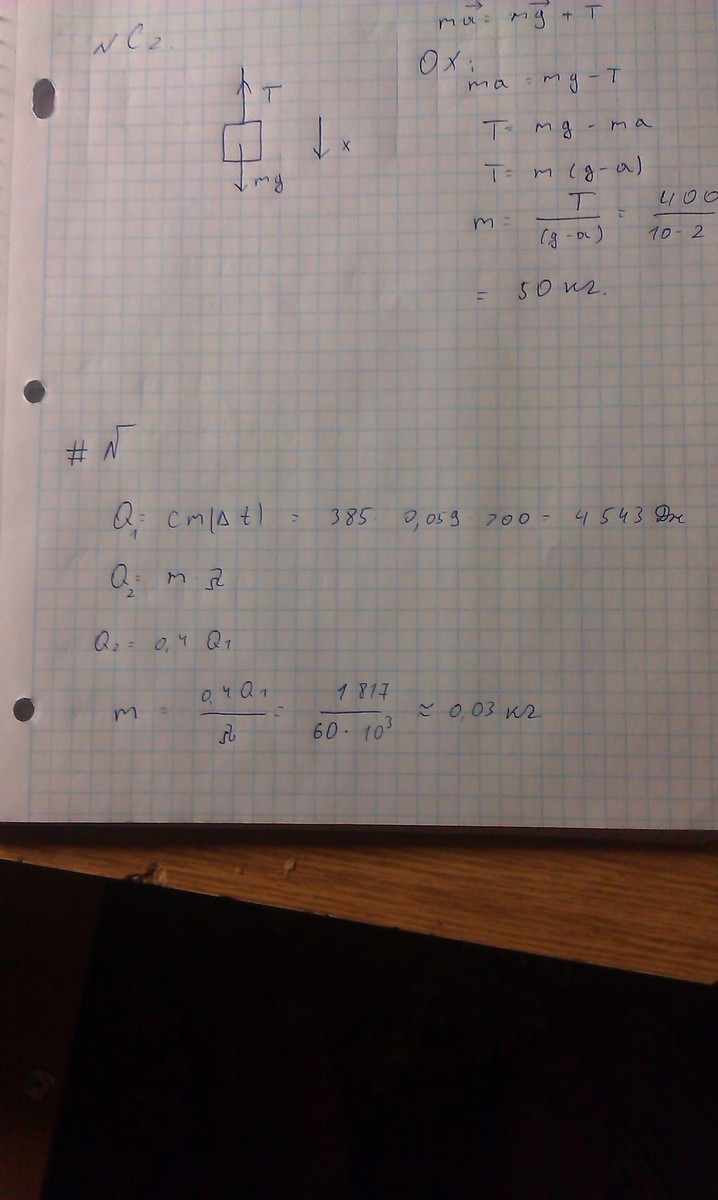 N C2.
T
x
mg
ma⃗ = mg⃗ + T
OX:
ma = mg - T
T = mg - ma
T = m (g-a)
m = T/(g-a) = 400/10-2
= 50 кг.
# N
Q₁ = cm(Δt) = 385 · 0,059 · 200 = 4 543 Дж
Q₂ = m · λ
Q₂ = 0,4 Q₁
m = 0,4 Q₁/λ = 1 817/60 · 10³ ≈ 0,03 кг